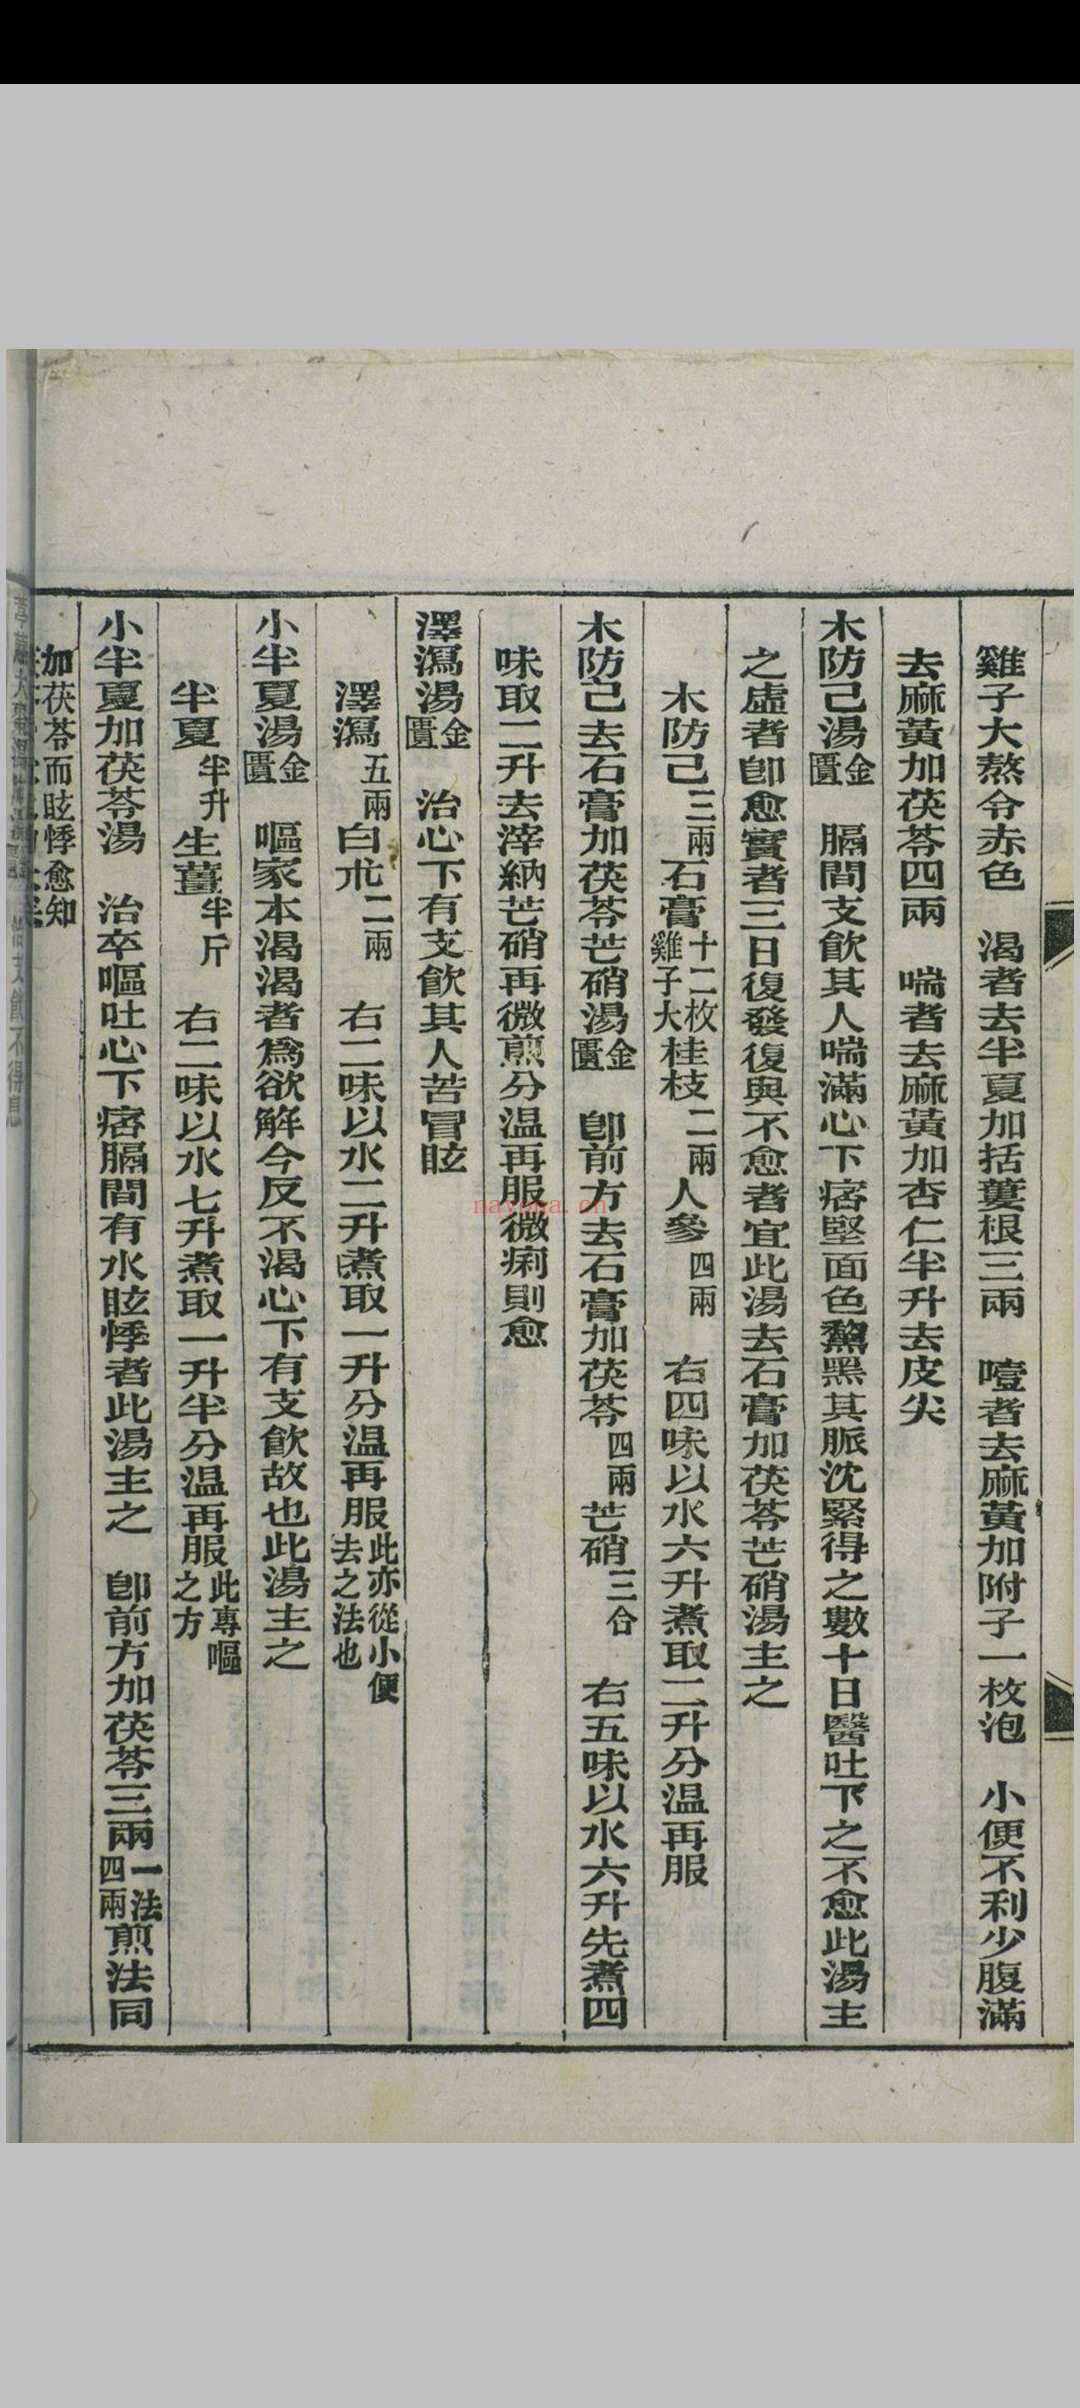 雞子大熬令赤色　渴者去半夏加括蔞根三兩　噎者去麻黃加附子一枚泡　小便不利少腹滿
去麻黃加茯苓四兩　喘者去麻黃加杏仁半升去皮尖
木防己湯金匱　膈間支飲其人喘滿心下痞堅面色黧黑其脈沈緊得之數十日醫吐下之不愈此湯主
之虛者卽愈實者三日復發復與不愈者宜此湯去石膏加茯苓芒硝湯主之
木防己三兩石膏十二枚雞子大桂枝二兩人參四兩　右四味以水六升煮取二升分温再服
木防己去石膏加茯苓芒硝湯金匱　卽前方去石膏加茯苓四兩芒硝三合　右五味以水六升先煮四
味取二升去滓納芒硝再微煎分温再服微痢則愈
澤瀉湯金匱　治心下有支飲其人苦冒眩
澤瀉五兩白朮二兩　右二味以水二升煮取一升分温再服此亦從小便去之法也
小半夏湯金匱　嘔家本渴渴者爲欲解今反不渴心下有支飲故也此湯主之
半夏半升生薑半斤　右二味以水七升煮取一升半分温再服此專嘔之方
小半夏加茯苓湯　治卒嘔吐心下痞膈間有水眩悸者此湯主之　卽前方加茯苓三兩一法四兩煎法同
加茯苓而眩悸愈知
nayona.cn